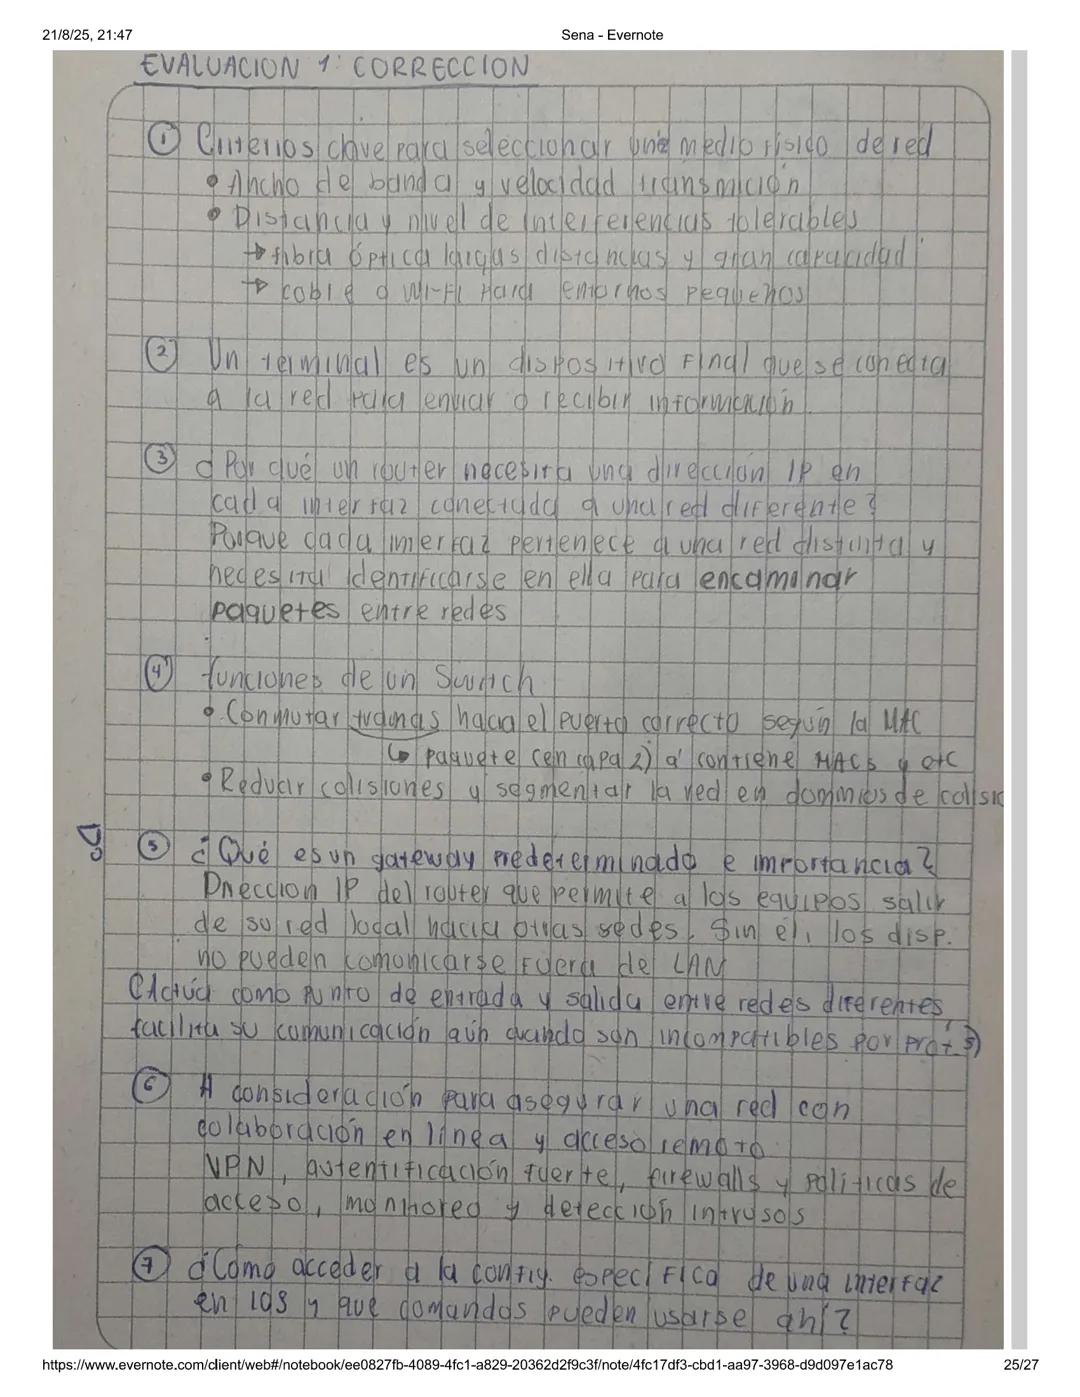 21/8/25, 21:47
Sena - Evernote
EVALUACION 1: CORRECCION
① Criterios clave para seleccionar una medio fisico de red
• Ancho de banda y velocidad transmición
• Distancia y nivel de interferencias tolerables
→ fibra óptica largas distancias y gran capacidad
→ cable o Wi-Fi para entornos pequeños
② Un terminal es un dispositivo Final que se conecta
a la red para enviar o recibir información.
③ ¿Por qué un router necesita una dirección IP en
cada interfaz conectada a una red diferente?
Porque cada interfaz pertenece a una red distinta y
necesita identificarse en ella para encaminar
paquetes entre redes
④ funciones de un Switch
• Conmutar tramas hacia el puerto correcto según la MAC
↳ paquete (en capa 2) q' contiene MACs y etc
• Reducir colisiones y segmentar la red en dominios de colisio
⑤ ¿Qué es un gateway predeterminado e importancia?
Direccion IP del router que permite a los equipos salir
de su red local hacia otras redes. Sin él, los disp.
no pueden comunicarse fuera de LAN
(Actúa como punto de entrada y salida entre redes diferentes
facilita su comunicación aún cuando son incompatibles por prot.s)
⑥ A consideración para asegurar una red con
colaboración en línea y acceso remoto
VPN, autentificación fuerte, firewalls y políticas de
acceso, monitoreo y detección intrusos
⑦ ¿Cómo acceder a la config. especiFica de una interfaz
en ios y que comandos pueden usarse ahí?
https://www.evernote.com/client/web#/notebook/ee0827fb-4089-4fc1-a829-20362d2f9c3f/note/4fc17df3-cbd1-aa97-3968-d9d097e1ac78
25/27